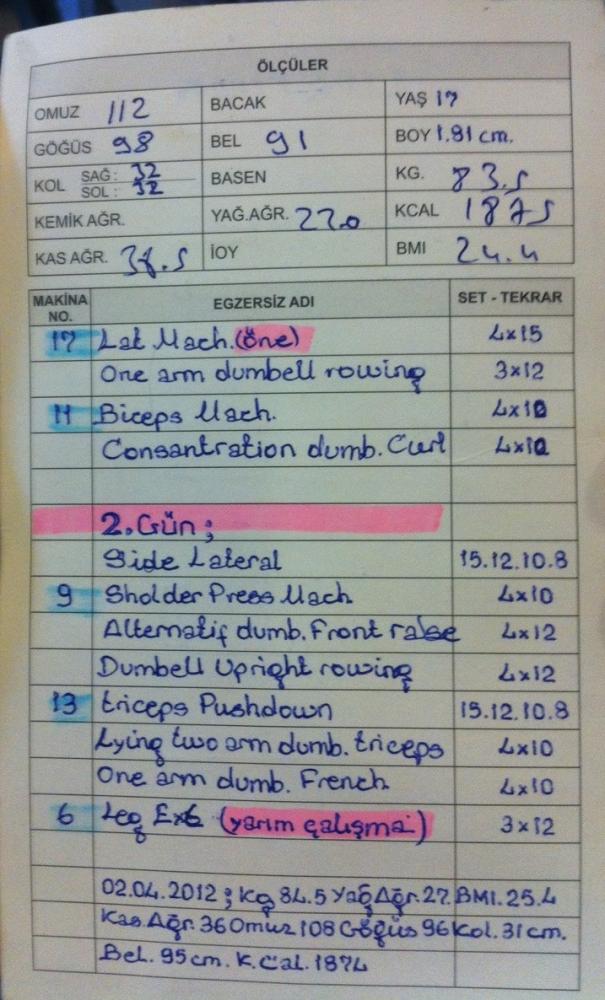 ÖLÇÜLER
OMUZ 112 BACAK YAŞ 17
GÖĞÜS 98 BEL 91 BOY 1.81 cm.
KOL SAĞ: 32 SOL: 32 BASEN KG. 83.5
KEMİK AĞR. YAĞ.AĞR. 22.0 KCAL 1875
KAS AĞR. 38.5 İOY BMI 24.4
MAKİNA NO. EGZERSİZ ADI SET - TEKRAR
17 Lat Mach.(öne) 4x15
One arm dumbell rowing 3x12
11 Biceps Mach. 4x10
Consantration dumb. Curl 4x10
2.Gün;
Side Lateral 15.12.10.8
9 Sholder Press Mach 4x10
Alternatif dumb. Front raise 4x12
Dumbell Upright rowing 4x12
13 triceps Pushdown 15.12.10.8
Lying two arm dumb. triceps 4x10
One arm dumb. French 4x10
6 Leg Ext (yarım çalışma) 3x12
02.04.2012; Kg 84.5 Yağ Ağr.27. BMI.25.4
Kas.Ağr.36 Omuz 108 Göğüs 96 Kol.31 cm.
Bel. 95 cm. K.Cal. 1874